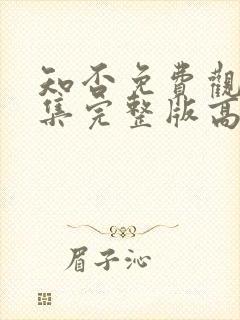 知否免費觀
集完整版高
眉子沁